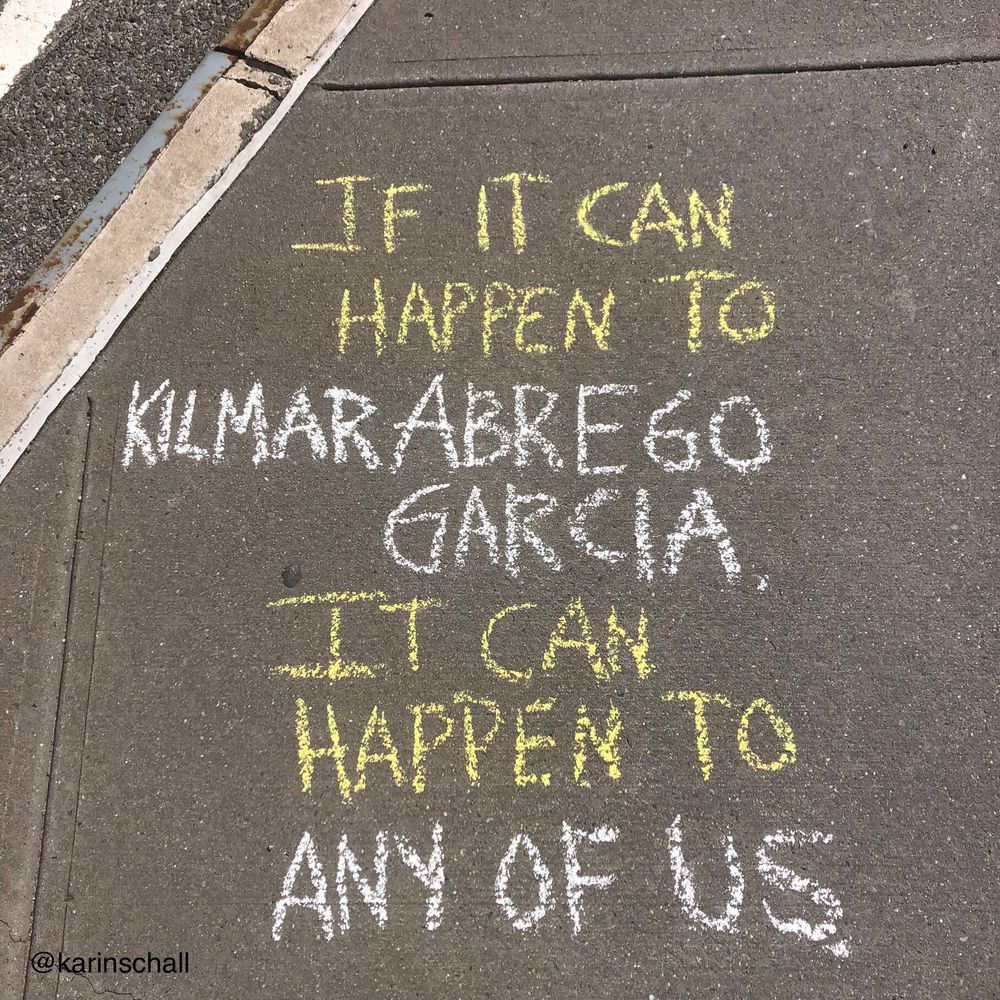 IF IT CAN
HAPPEN TO
KILMAR ABREGO
GARCIA,
IT CAN
HAPPEN TO
ANY OF US.
@karinschall